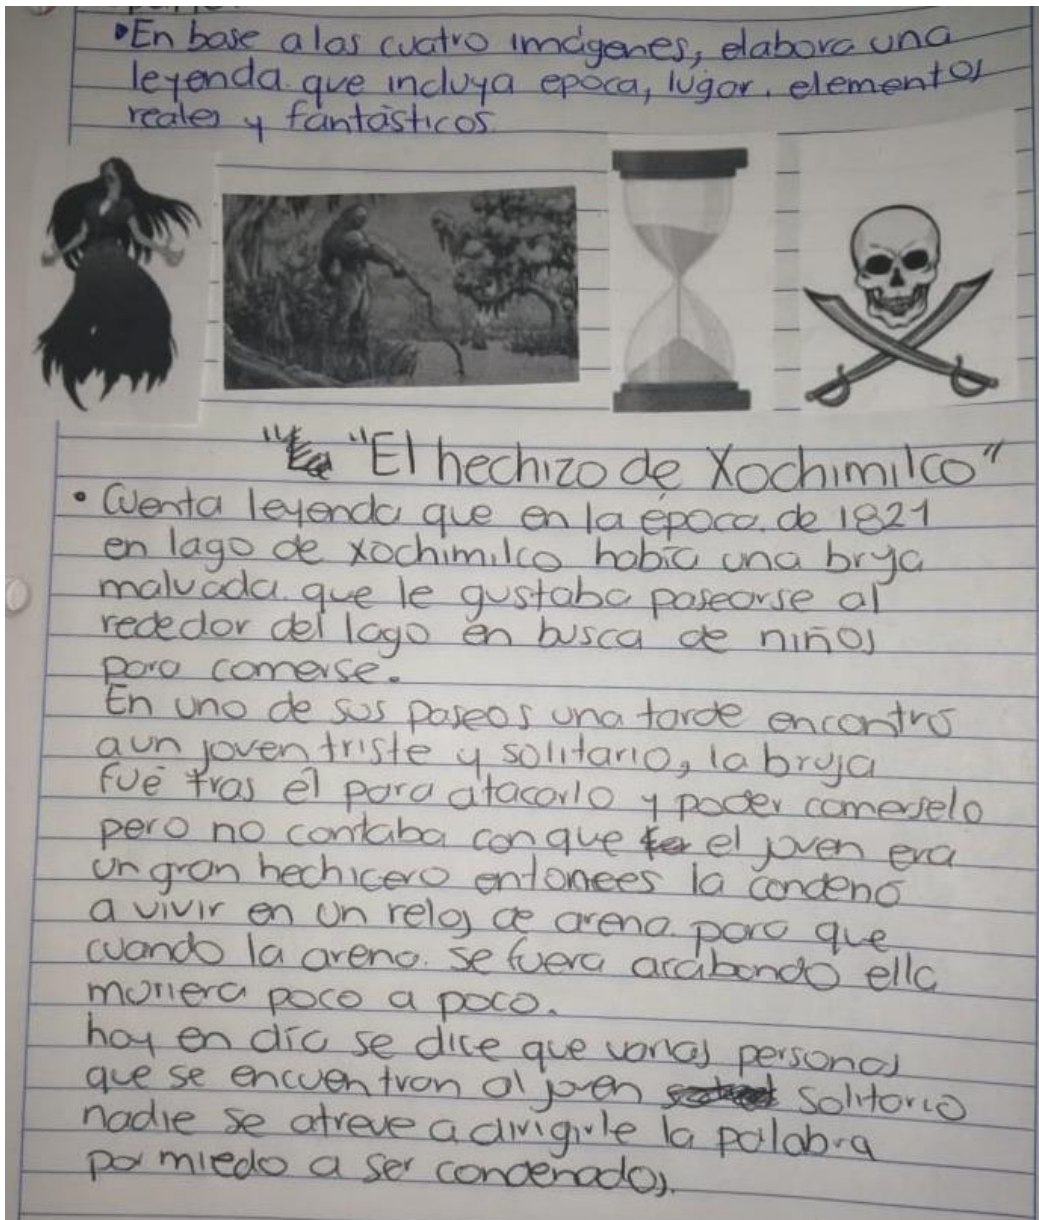 •En base a las cuatro imágenes, elabora una
leyenda que incluya epoca, lugar, elementos
reales y fantásticos.
"El hechizo de Xochimilco"
• Cuenta leyenda que en la época de 1821
en lago de xochimilco había una bruja
malvada que le gustaba pasearse al
rededor del lago en busca de niños
para comerse.
En uno de sus paseos una tarde encontró
aun joven triste y solitario, la bruja
fué tras él para atacarlo y poder comerselo
pero no contaba con que el joven era
un gran hechicero entonces la condenó
a vivir en un reloj de arena para que
cuando la arena se fuera acabando ella
muriera poco a poco.
hoy en día se dice que varias personas
que se encuentran al joven solitario
nadie se atreve a dirigirle la palabra
por miedo a ser condenados.